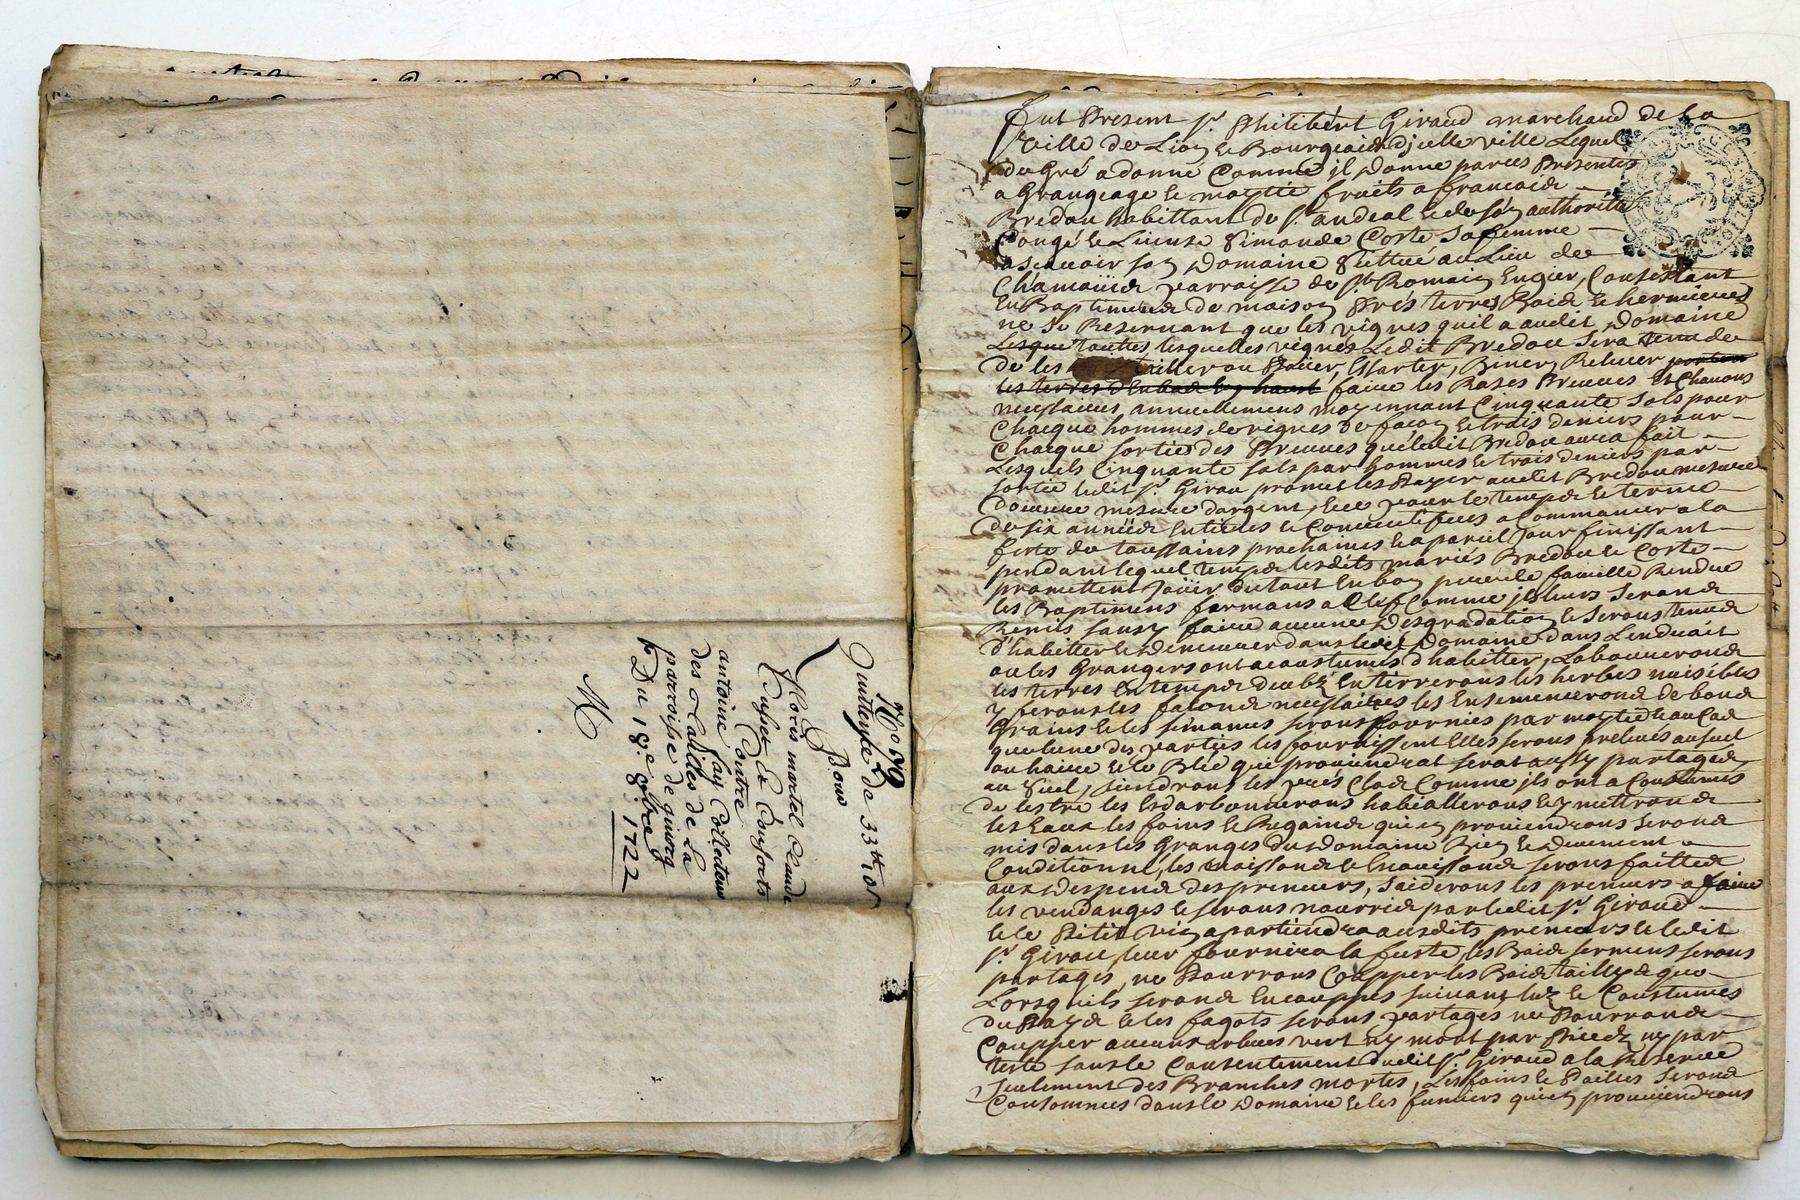 N.o 59
Quinteyse de 33tt 0s
Pour
floris martel Claude
Cusset & Consorts
Contre
antoine fay Collecteur
des Tailles de La
parroisse de
Du 18.e 8bre 1722
fut Present sr. Philibért Giraud marchand de La
Ville de Lion & Bourgeois djcelle ville Lequel
de Gré a donné Comme jl donne par ces Présentes
a Grangeage & moytié fruits a francois
Bredou habittant de st. andeal & de son authorité
Congé & License Simande Corte Sa femme
ascavoir son Domaine scittué au Lieu de
parroisse de st Romain Engier, Consistant
En Baptimens de maison Prés terres Bois & hermieures
ne se Reservant que les vignes quil a audit Domaine
Lesquelles vignes Ledit Bredou sera tenu de
de les tailler ou Poüer, Essarter, Biner, Relever
faire les Rases Preuves & Chavons
necessaires annuellement moyennant Cinquante sols pour
Chacque hommes de vignes de façon & trois deniers pour
Chacque sorties des Preuves quéledit Bredou aura fait
Lesquels Cinquante sols par hommes & trois deniers par
sortie ledit sr. Girou promet les Payer audit Bredou mesure
dœuvre mesure dargent, & ce pour le temps & terme
de six années Entieres & Consecutives a Commancer a la
feste de Toussains prochaines & a pareil Jour finissant
pendant lequel temps lesdits mariés Bredou & Corte
promettent Joüir du tout En bon pere de famille Rendre
les Baptimens fermans a Clef Comme jls leurs Seront
Remis sans y faire aucunes Desgradation & Seront tenus
d'habitter & demeurer dans ledit Domaine dans Lendroit
ou les Grangers ont acoustumés d'habitter, Laboureront
les terres En temps deubz Enterreront les herbes nuisibles
y feront les façons necessaires les Ensemenceront de bons
Grains & les semances seront fournies par moytié & au Cas
que lune des parties les fournissent Elles seront prelevés au suel
ou haire & le Blé qui proviendrat serat aussy partagés
au suel, tiendront les prés Clos Comme jls ont a Coustumes
de lestre les Esdarbonneront habialleront & y mettront
les Eaux les foins & Regains qui en proviendrons seront
mis dans les Granges du domaine Bien & duement
Conditionné, les moissons & Enouissons seront faittes
aux Despens des preneurs, saideront les preneurs a faire
les vendanges & seront nourris par ledit sr. Giraud
& le Petit vin apartiendra ausdits preneurs & ledit
sr. Girou leur fournira la fuste, les Bois serment seront
partagés, ne Pourrons Coupper les Bois taillis que
Lorsquils seront En couppes suivant luz & Coustumes
du Pays & les fagots seront partagés ne Pourront
Coupper aucuns arbres vert ny mort par Pieds ny par
teste sans le Consentement dudit sr. Giraud a la Reserve
seulement des Branches mortes, Les foins & Pailles seront
Consommés dans le Domaine & les fumiers qui en proviendrons